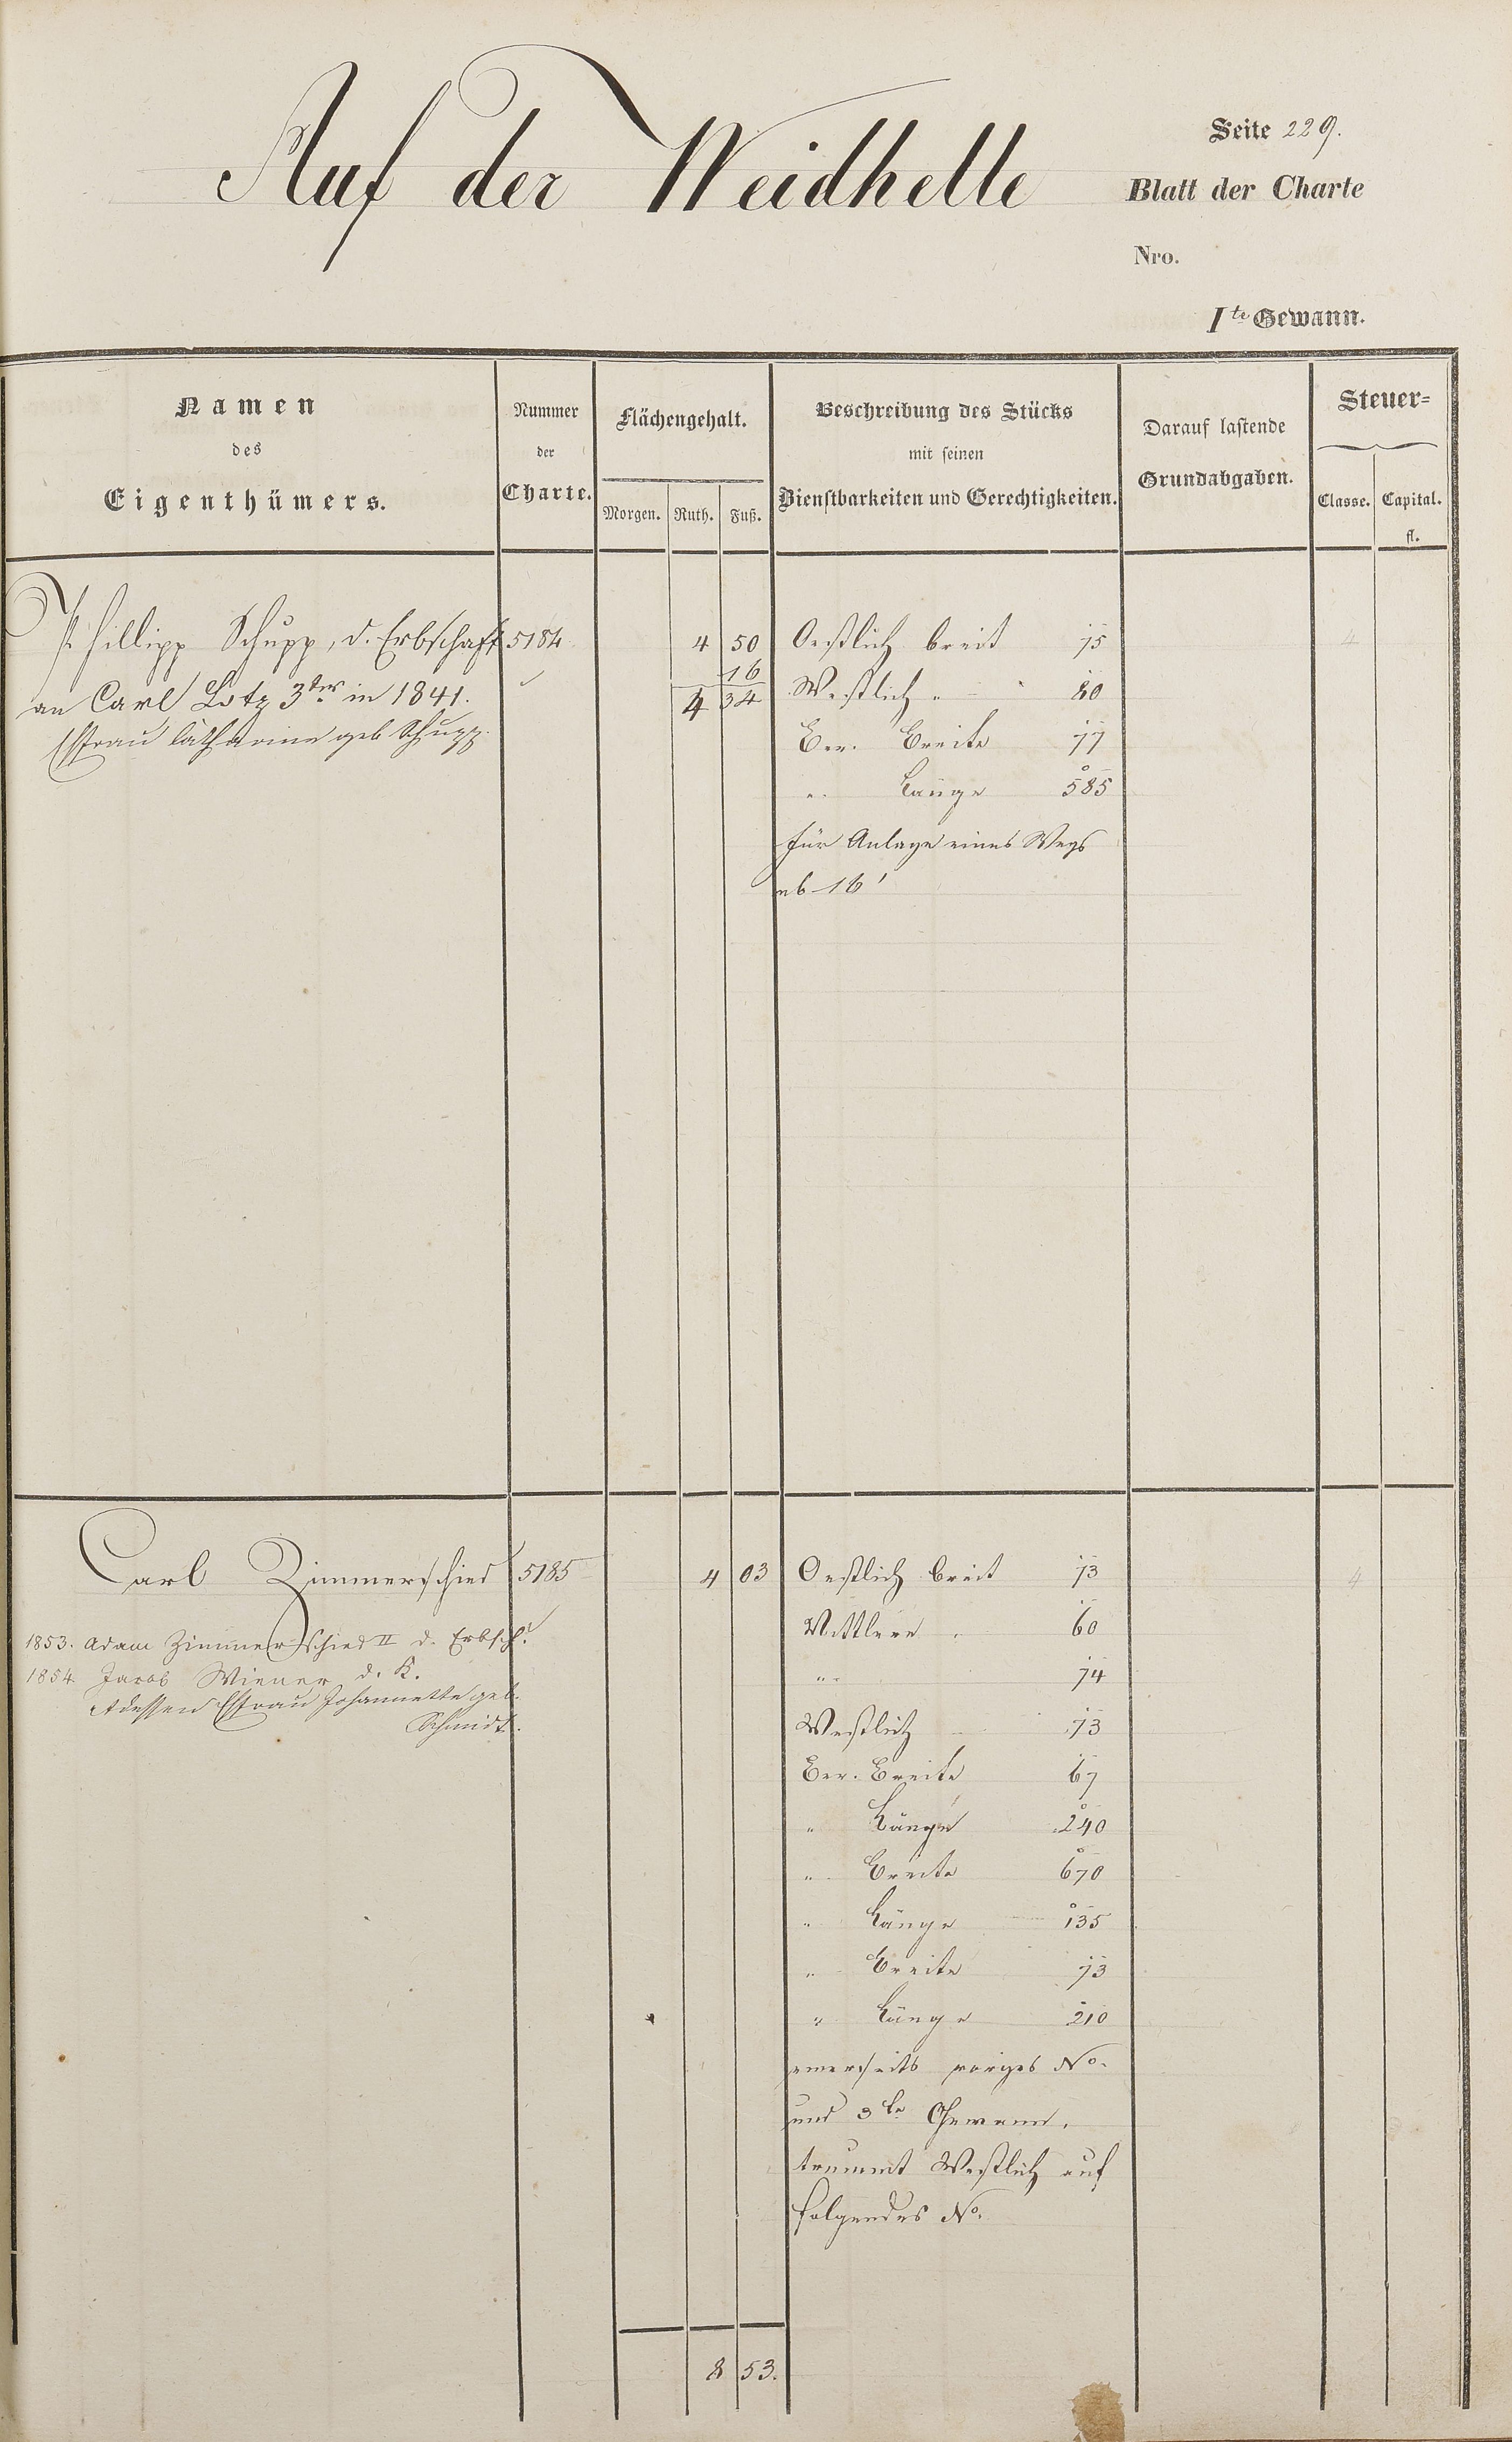 Auf der Weidhelle
Seite 229.
Blatt der Charte
Nro.
Ite Gewann.
Namen
des
Eigenthümers.
Nummer
der
Charte.
Flächengehalt.
Morgen. Ruth. Fuß.
Beschreibung des Stücks
mit seinen
Dienstbarkeiten und Gerechtigkeiten.
Darauf lastende
Grundabgaben.
Steuer=
Classe. Capital.
fl.
Phillipp Schupp, d. Erbschaft 5184 4 50 Oestlich breit 75 4
16
an Carl Lotz 3ter in 1841. 4 34 Westlich " 80
Ehfrau Catharine geb Schupp.
Ber. Breite 77
" Länge 585
für Anlage eines Wegs
ab 16'
Carl Zimmerschied 5185 4 03 Oestlich breit 73 4
1853. Adam Zimmerschied II d. Erbsch.
Mittlere " 60
1854 Jacob Wiener d. K.
" " 74
dessen Ehfrau Johannette geb.
Schmidt.
Westlich 73
Ber. Breite 67
" Länge 240
" Breite 670
" Länge 135
" Breite 73
" Länge 210
einerseits voriges No.
und 3te Gewann.
trummt Westlich auf
folgendes No.
8 53.